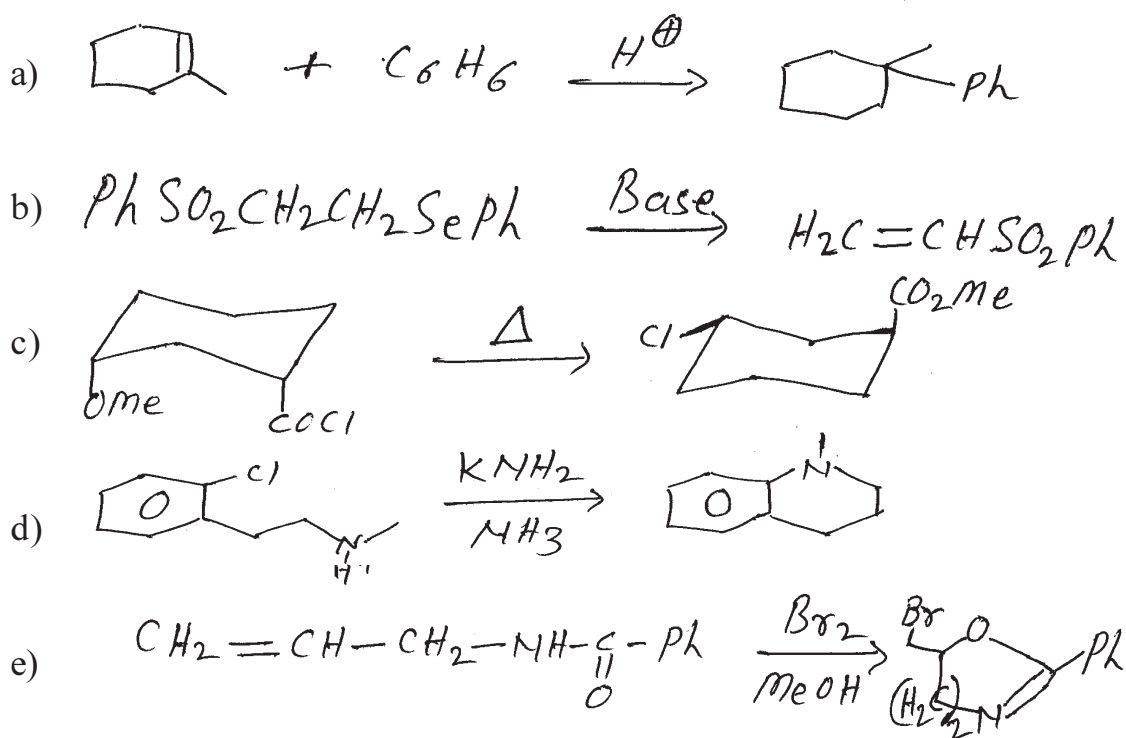 a) + C6H6 H⊕ Ph
b) PhSO2CH2CH2SePh Base H2C=CHSO2Ph
c) OMe COCl Δ Cl CO2Me
d) Cl N H KNH2 NH3 N
e) CH2=CH-CH2-NH-C-Ph O Br2 MeOH Br O Ph (H2C)2 N